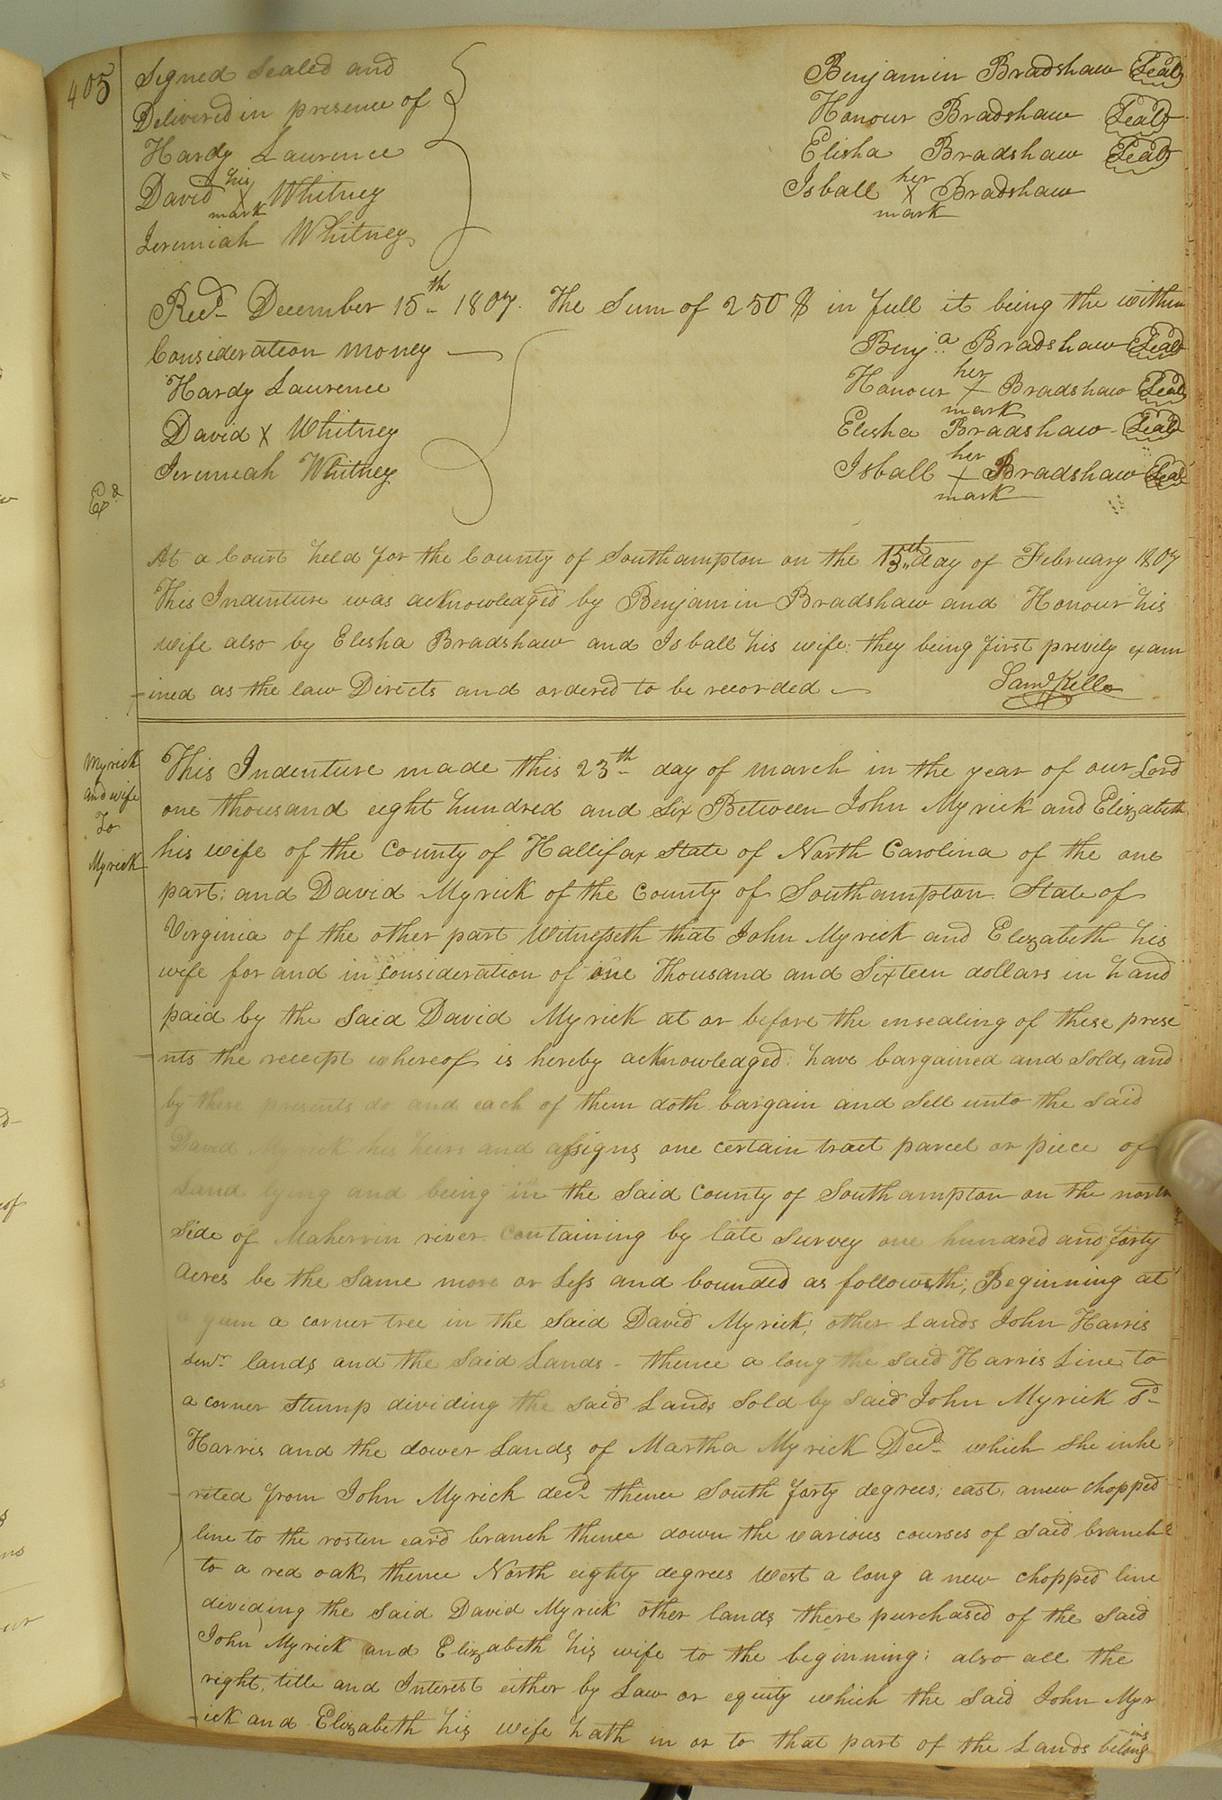 405
Signed Sealed and
Delivered in presence of
Hardy Laurence
David his X mark Whitney
Jeremiah Whitney
Benjamin Bradshaw Seal
Honour Bradshaw Seal
Elisha Bradshaw Seal
Isball her X mark Bradshaw
Recd December 15th 1807. The Sum of 250 $ in full it being the within
Consideration money
Hardy Laurence
David X Whitney
Jeremiah Whitney
Benja Bradshaw Seal
Honour her X mark Bradshaw Seal
Elisha Bradshaw Seal
Isball her X mark Bradshaw Seal
Exd
At a Court held for the County of Southampton on the day of February 1807
This Indenture was acknowledged by Benjamin Bradshaw and Honour his
wife also by Elisha Bradshaw and Isball his wife: they being first privily exam
-ined as the law Directs and ordered to be recorded
Saml Kello
Myrick
and wife
To
Myrick
This Indenture made this 23th day of march in the year of our Lord
one thousand eight hundred and Six Between John Myrick and Elizabeth
his wife of the County of Hallifax State of North Carolina of the one
part: and David Myrick of the County of Southampton State of
Virginia of the other part Witnesseth that John Myrick and Elizabeth his
wife for and in consideration of one Thousand and Sixteen dollars in hand
paid by the Said David Myrick at or before the ensealing of these prese
-nts the receipt whereof is hereby acknowledged: have bargained and Sold, and
by these presents do and each of them doth bargain and Sell unto the Said
David Myrick his heirs and assigns one certain tract parcel or piece of
Land lying and being in the Said County of Southampton on the north
Side of Maherrin river containing by late Survey one hundred and forty
Acres be the Same more or Less and bounded as followeth; Beginning at
a gum a corner tree in the Said David Myrick; other Lands John Harris
Senr lands and the Said Lands - thence a long the Said Harris Line to
a corner Stump dividing the Said Lands Sold by Said John Myrick Sd
Harris and the dower Lands of Martha Myrick Decd which She inhe
-rited from John Myrick decd thence South forty degrees; east, anew chopped
line to the rosten eard branch thence down the various courses of Said branch
to a red oak, thence North eighty degrees West a long a new chopped line
dividing the Said David Myrick other lands there purchased of the Said
John Myrick and Elizabeth his wife to the beginning; also all the
right, title and Interest either by Law or equity which the Said John Myr
-ick and Elizabeth his wife hath in or to that part of the Lands belonging